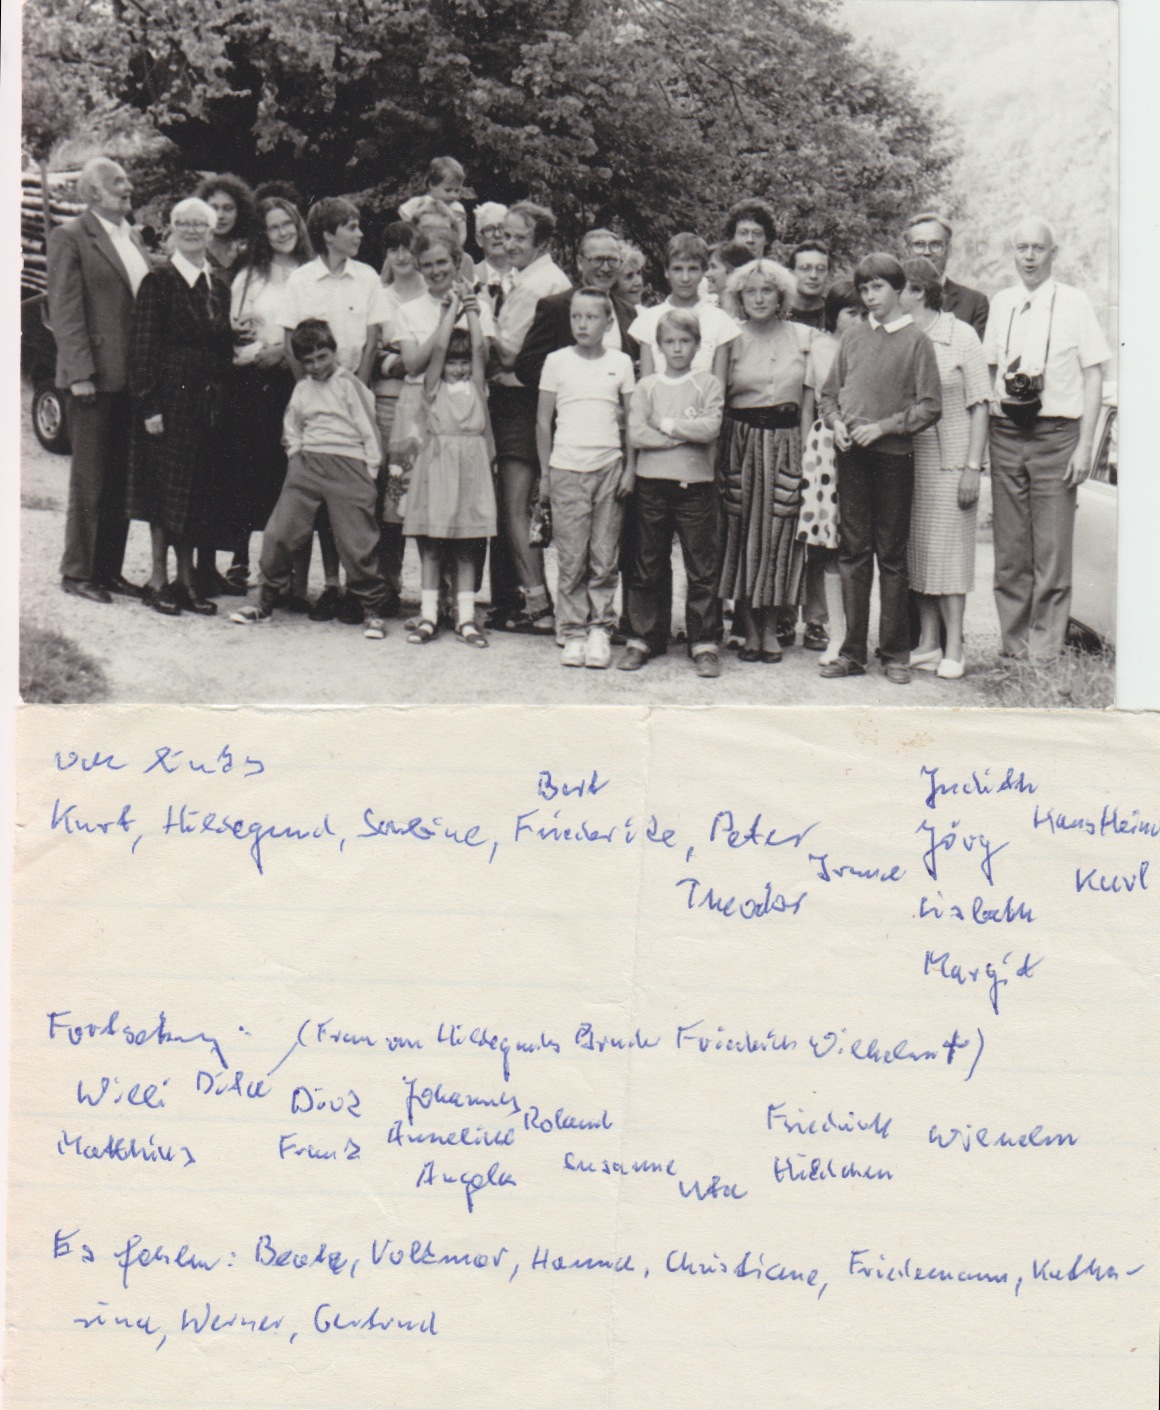 von links
Bert Judith
Kurt, Hildegund, Sabine, Friederike, Peter Jörg Hans Heinz
Irene Kurt
Theodor Lisbeth
Margit
Fortsetzung: (Frau von Hildegunds Bruder Friedrich Wilhelm †)
Willi Dita Dirk Johannes
Matthias Frank Anneline Roland Friedrich Wilhelm
Angela Susanne Uta Hildchen
Es fehlen: Beate, Volkmar, Hanna, Christiane, Friedemann, Katha-
rina, Werner, Gertrud